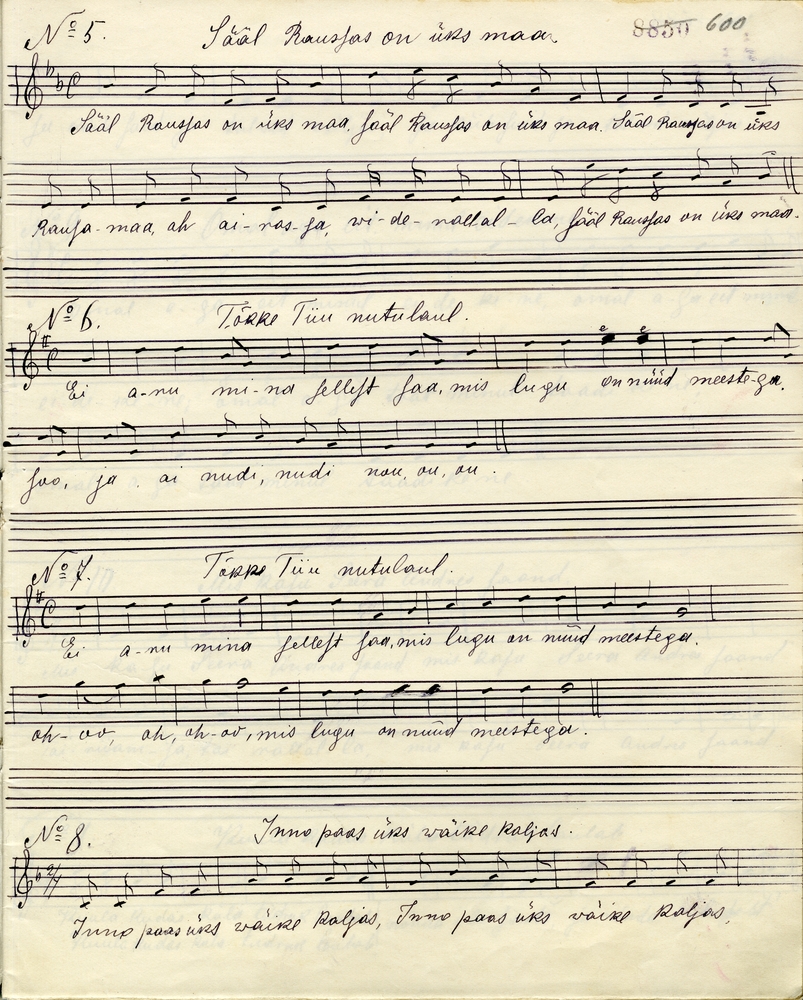 8850 600
No 5. Sääl Kausjas on üks maa.
Sääl Kausjas on üks maa, sääl Kausjas on üks maa. Sääl Kausjas on üks
Kausja-maa, ah ai-ras-sa, wi-de-rallal-la, sääl Kausjas on üks maa.
No 6. Tõkke Tiiu nutulaul.
Ei a-nu mi-na sellest saa, mis lugu on nüüd meeste-ga,
soo, ja ai nudi, nudi nou, ou, ou.
No 7. Tõkke Tiiu nutulaul.
Ei a-nu mina sellest saa, mis lugu on nüüd meestega.
oh-oo, oh, oh-oo, mis lugu on nüüd meestega.
No 8. Inno paas üks wäike kaljas.
Inno paas üks wäike kaljas, Inno paas üks wäike kaljas,